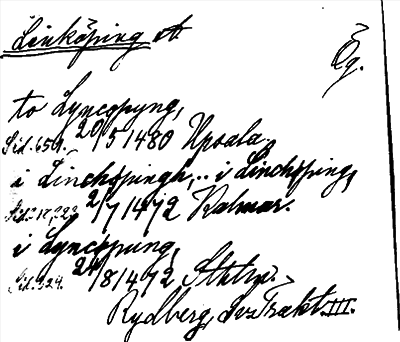 Linköping st
Ög.
to Lyncopyng,
Sid. 659. 20/5 1480 Upsala.
i Linchöpingh, .. i Linchöping,
Sid. 217,222 2/7 1472 Kalmar.
i Lyncopung,
Sid. 224. 24/8 1472 Sthlm.
Rydberg, Sv. Trakt. III.